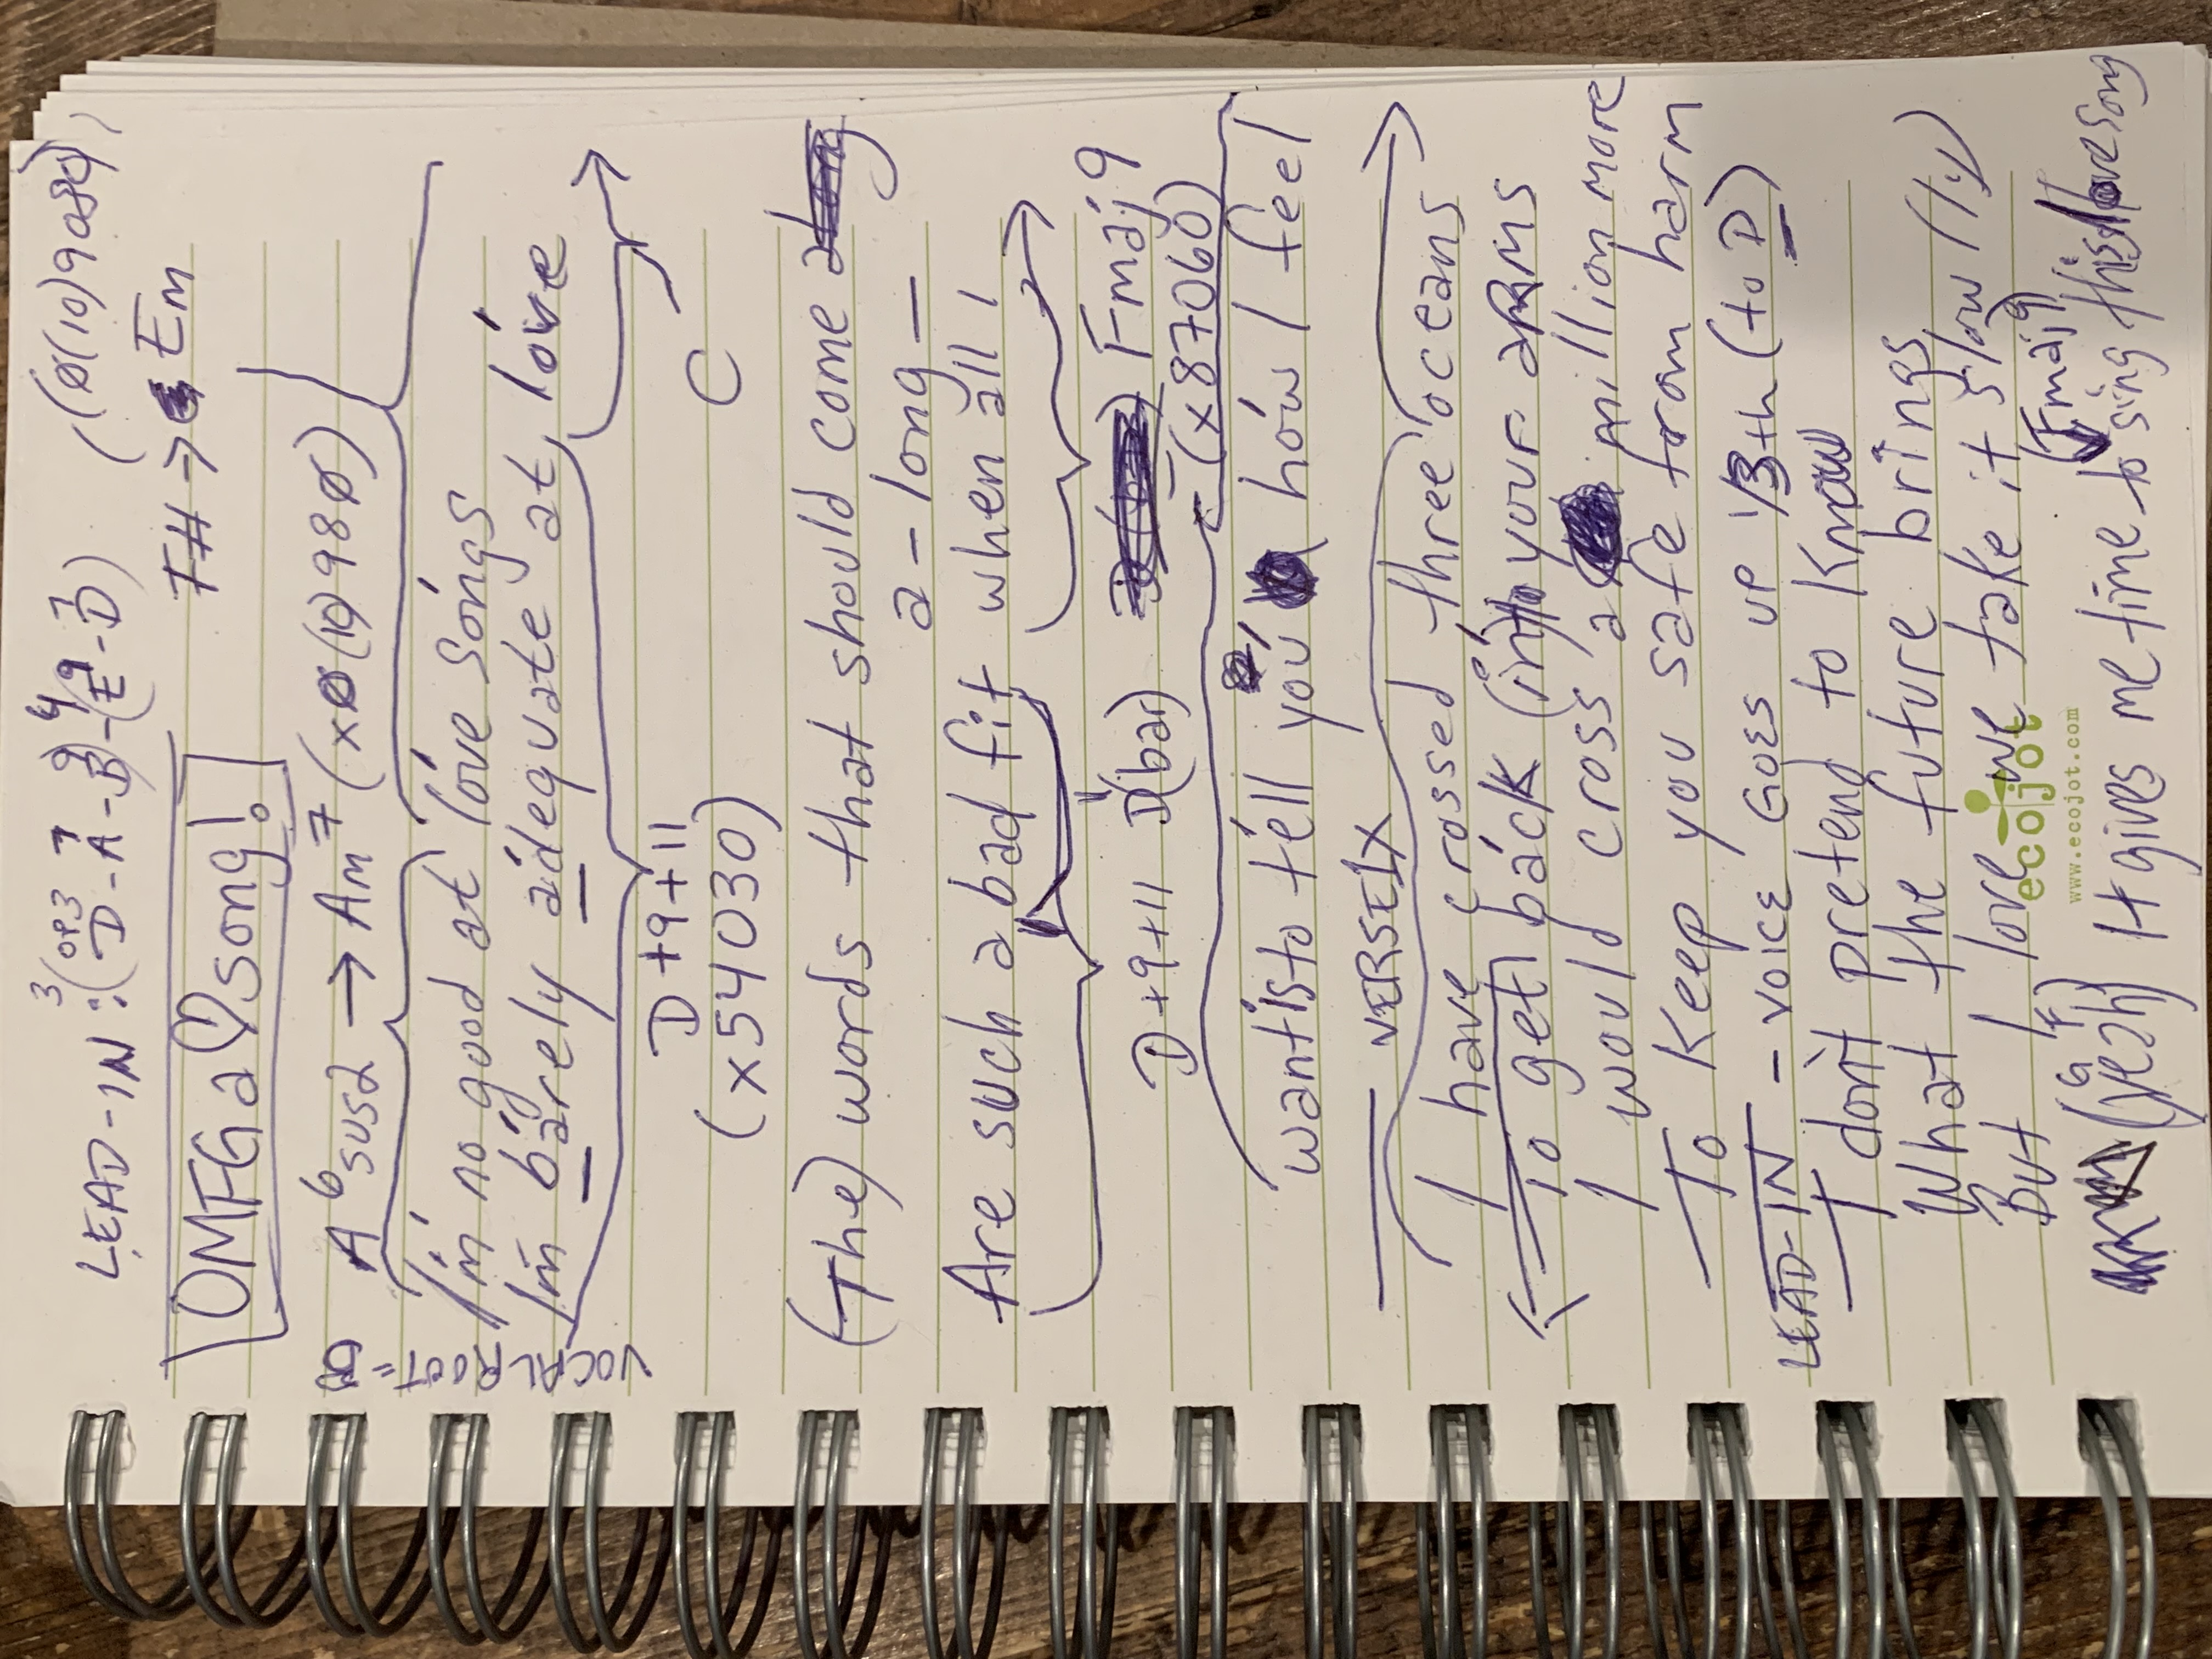 LEAD-IN: (D-A-B)-(E-D)
(0(10)9089)
F# → Em
OMFG a ♡ song!
A6sus2 → Am7 (x0(10)980)
I'm no good at love songs
I'm barely adequate at love
D+9+11
(x54030)
C
(The) words that should come
a-long-
Are such a bad fit when all I
D+9+11 D(bar) Fmaj9
(x87060)
want is to tell you how I feel
VERSE 1x
I have crossed three oceans
To get back (in) your arms
I would cross a million more
To keep you safe from harm
LEAD-IN - VOICE GOES UP 1/3th (to D)
I don't pretend to know
What the future brings
But I love we take it slow (ly)
(G F) (Fmaj9)
(yeah) It gives me time to sing this love song
ecojot
www.ecojot.com